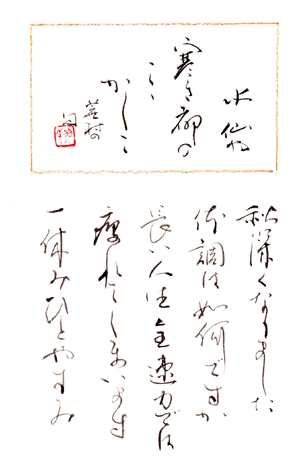 水仙や
寒き都の
こゝ
かしこ
蕪村
秋深くなりました
体調は如何ですか
長い人生全速力では
疲れてしまいます
一休みひとやすみ